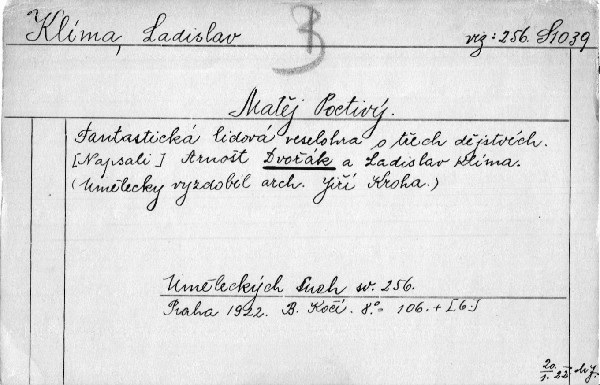 Klíma, Ladislav
viz: 256. S1039
Matěj Poctivý.
Fantastická lidová veselohra o třech dějstvích.
[Napsali] Arnošt Dvořák a Ladislav Klíma.
(Umělecky vyzdobil arch. Jiří Kroha.)
Uměleckých Snah sv. 256.
Praha 1922. B. Kočí. 8.° 106. + [6.]
20/1. 22